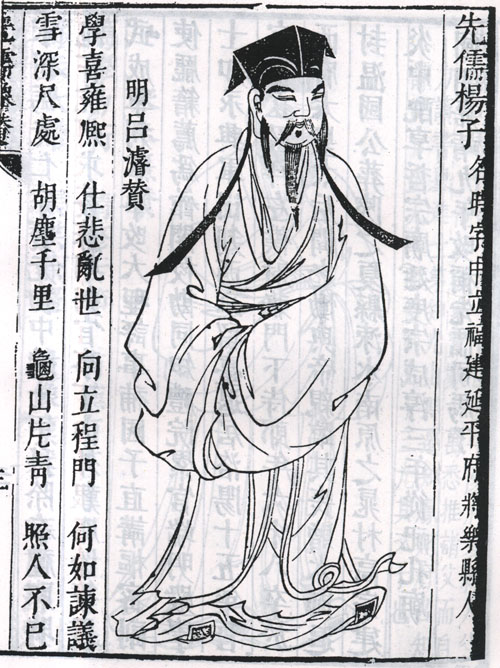 先儒楊子 名時字中立福建延平府將樂縣人
明呂濬贊
學喜雍熈 仕悲亂世 向立程門 何如諫議
雪深尺處 胡塵千里 龜山片青 照人不已